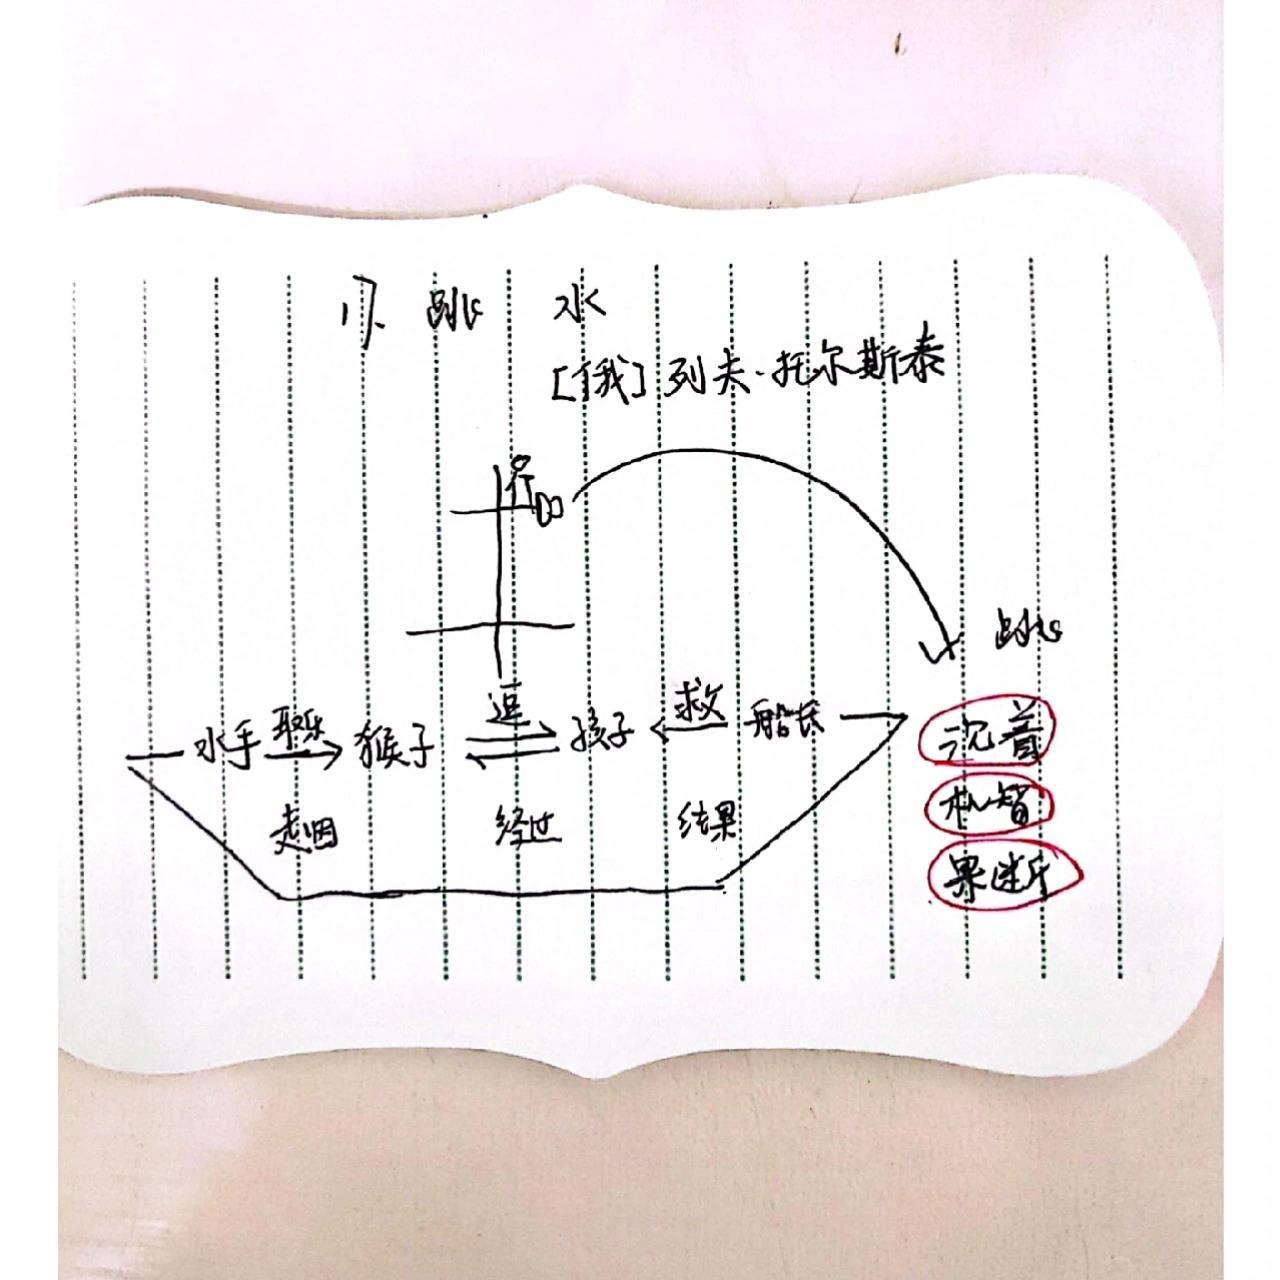 17. 跳 水
[俄] 列夫·托尔斯泰
跳
水手 取乐 猴子 逗 孩子 救 船长
起因 经过 结果
沉着
机智
果断